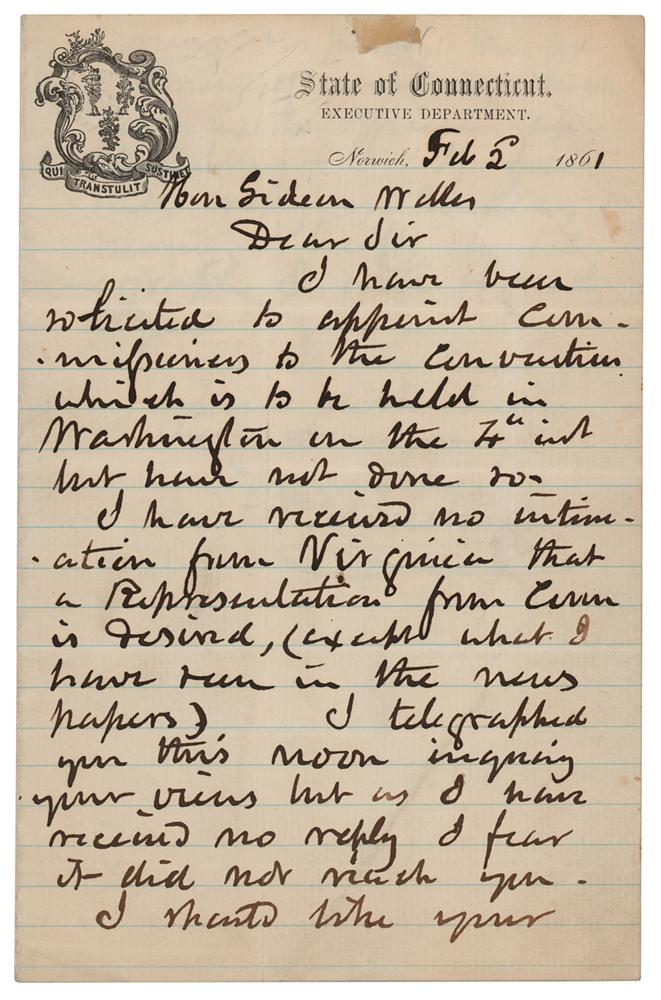 State of Connecticut.
EXECUTIVE DEPARTMENT.
QUI TRANSTULIT SUSTINET
Norwich, Feb 2d 1861
Hon Gideon Welles
Dear Sir
I have been
solicited to appoint Com-
-missioners to the Convention
which is to be held in
Washington on the 4th inst
but have not done so-
I have received no intim-
-ation from Virginia that
a Representation from Conn
is desired, (except what I
have seen in the news
papers) I telegraphed
you this noon inquiring
your views but as I have
received no reply I fear
it did not reach you -
I should like your